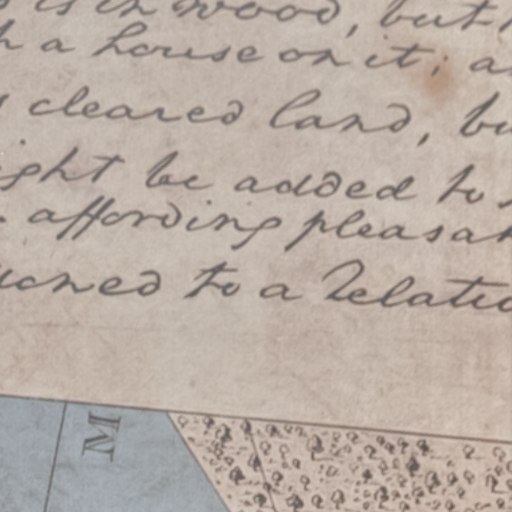 is in wood, but
a house on it; a
cleared land, bu
ght be added to
affording pleasan
ched to a Relatio
M